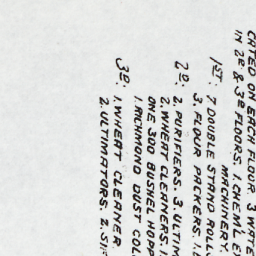 CATED ON EACH FLOOR. 3 WATE
IN 2D & 3D FLOORS. 1 CHEM'L E
MACHINERY.
1ST: 7 DOUBLE STAND ROLLS
3. FLOUR PACKERS. 1.
2D: 2. PURIFERS. 3. ULTIM
2. WHEAT CLEANERS. 1.
ONE 300 BUSHEL HOPP
1. RICHMOND DUST COL
3D: 1. WHEAT CLEANER
2. ULTIMATORS. 2. SI